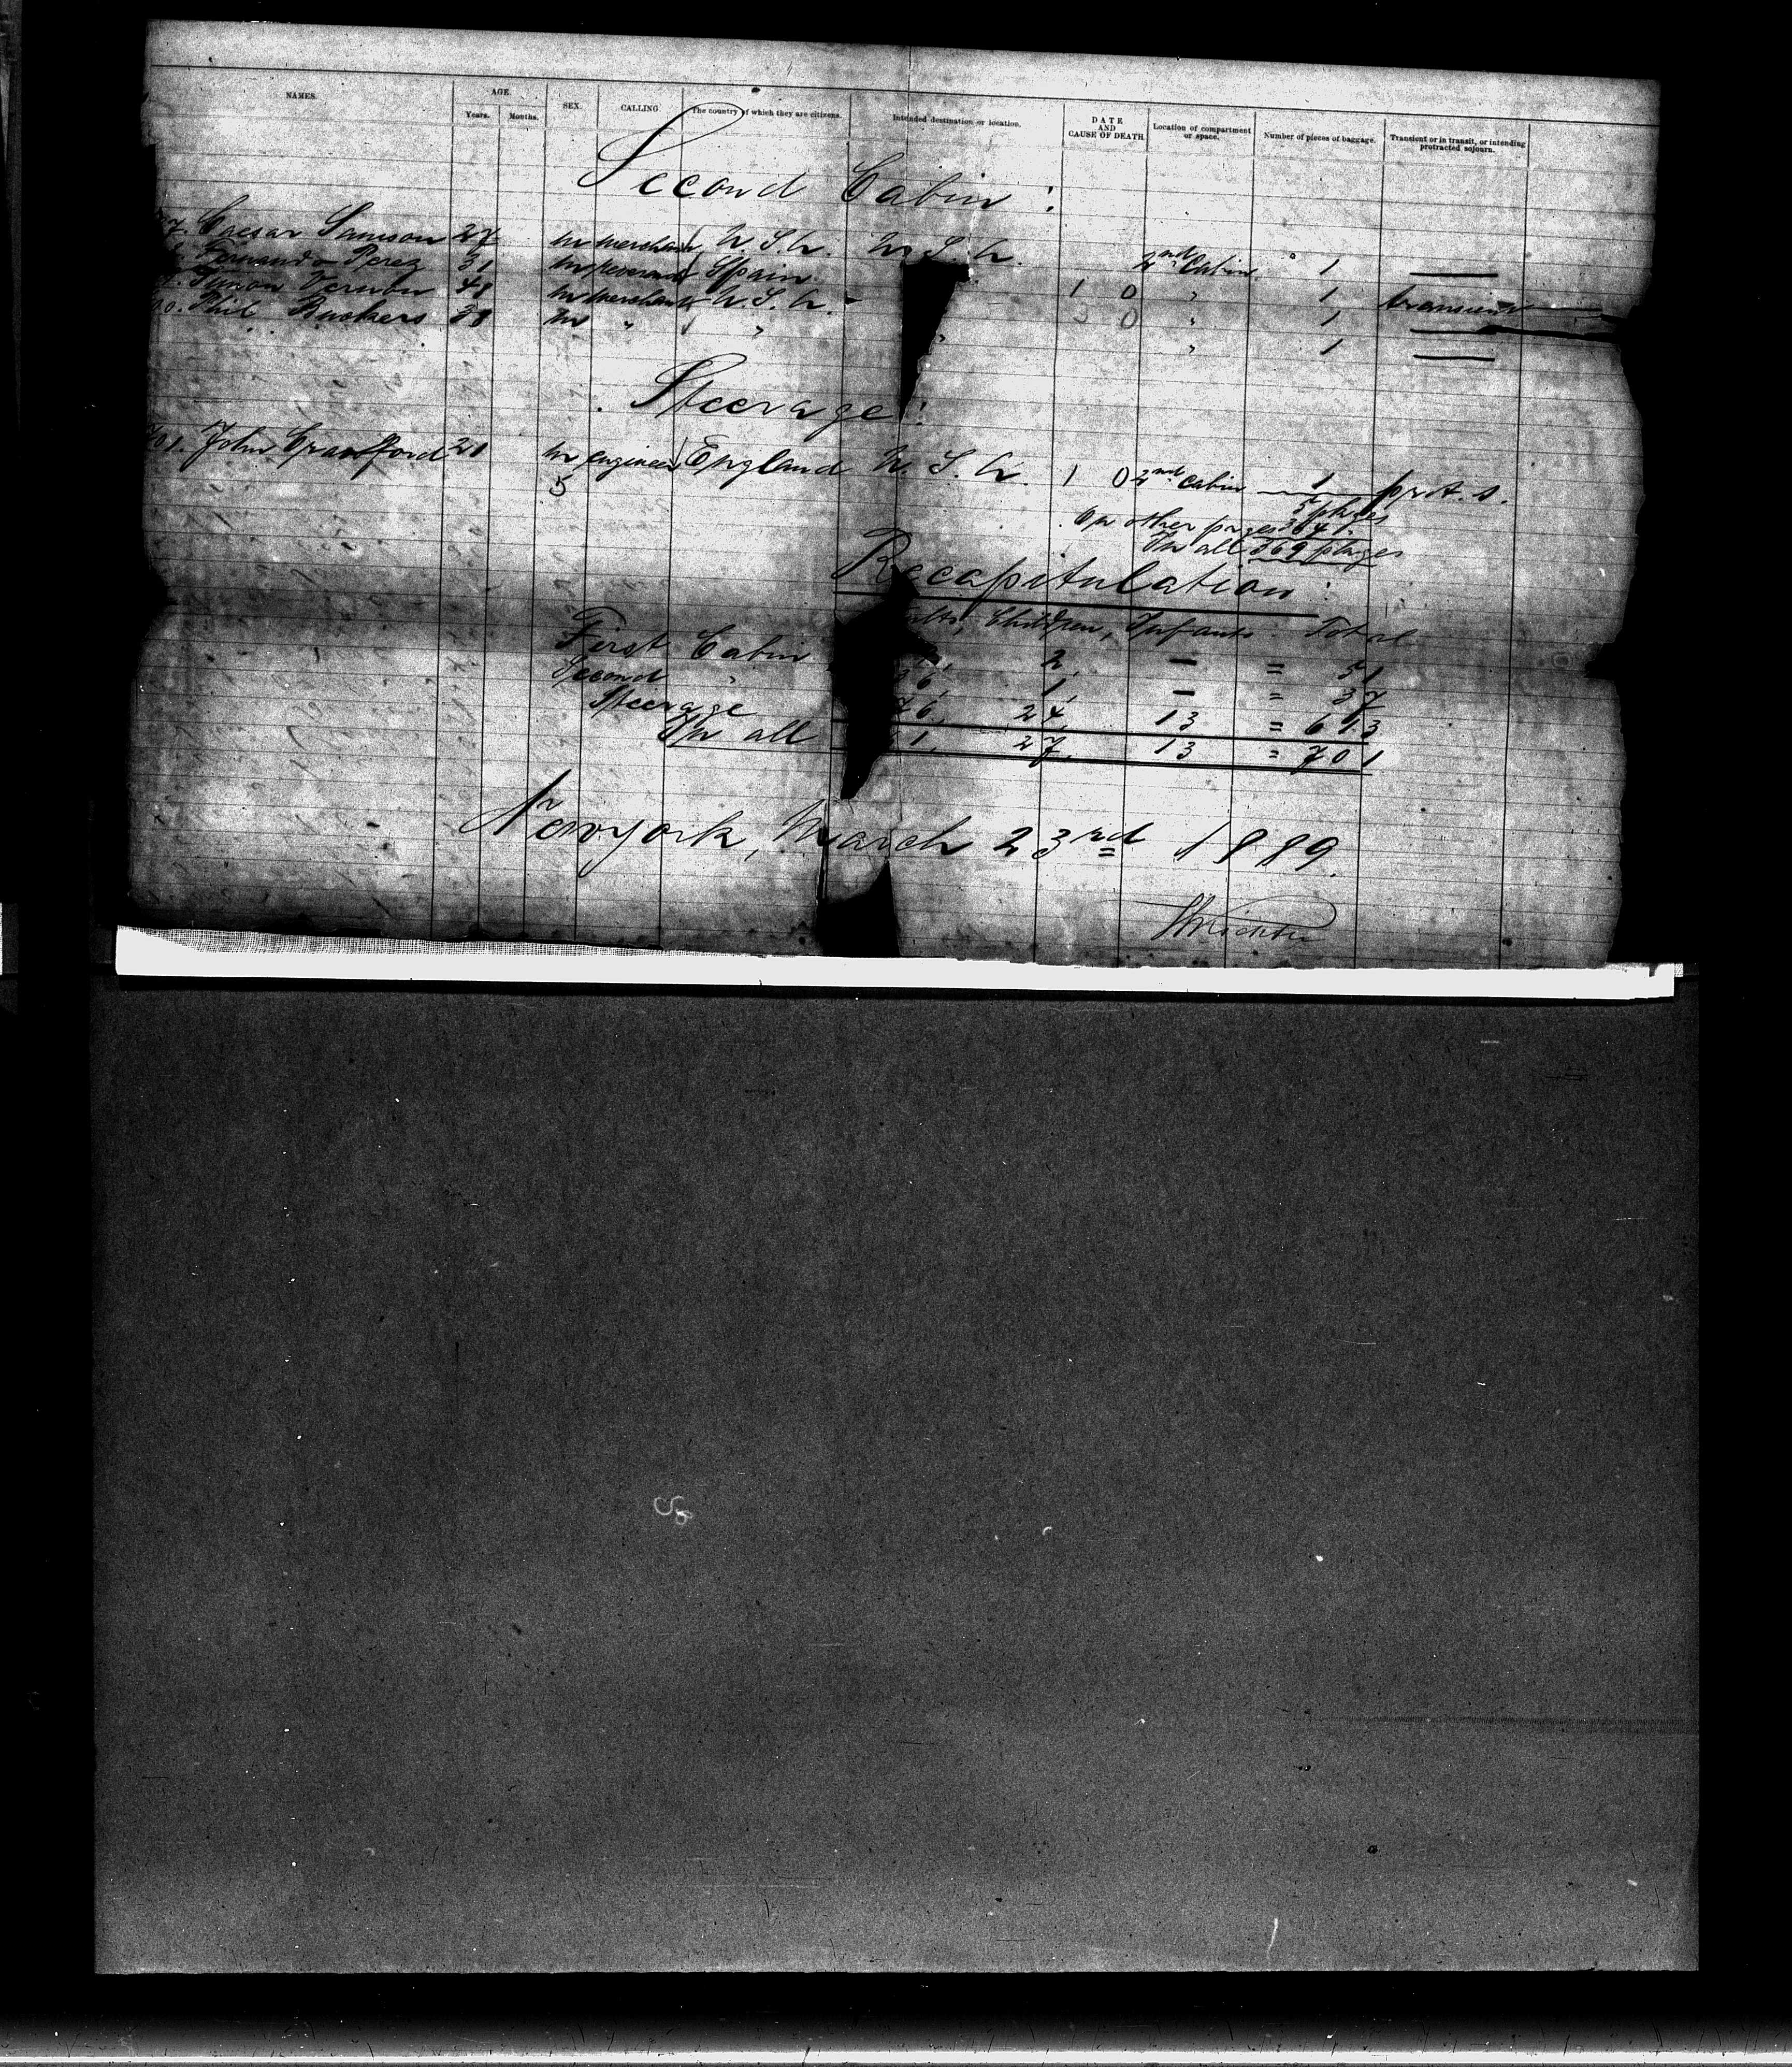 NAMES. AGE. SEX. CALLING. The country of which they are citizens. Intended destination or location. DATE AND CAUSE OF DEATH. Location of compartment or space. Number of pieces of baggage. Transient or in transit, or intending protracted sojourn.
Years. Months.
Second Cabin :
7. Caesar Samson 27 m merchant U. S. A. U. S. A. 2nd Cabin 1 —
Fernando Perez 31 m reverend Spain 1 0 " 1 transient
Simon 48 m merchant U. S. A. 3 0 " 1 —
00. Phil 38 m " " " " 1 —
Steerage :
01. John Crawford 21 m engineer England U. S. A. 1 0 2nd Cabin 1 prot. s.
5
5 pkges
On other pages 364
In all 369 pkges
Recapitulation :
ults, Children, Infants : Total
First Cabin 2, — = 51
Second " 36, 1, — = 37
Steerage 76, 24, 13 = 613
In all 61, 27, 13 = 701
Newyork, March 23rd 1889.